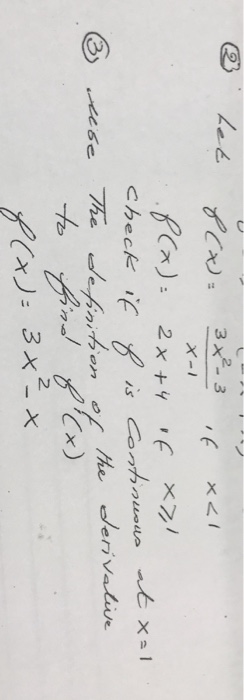 ② Let f(x) = \frac{3x^2-3}{x-1} if x < 1
f(x) = 2x+4 if x ≥ 1
check if f is continuous at x = 1
③ use The definition of the derivative
to find f'(x)
f(x) = 3x² - x